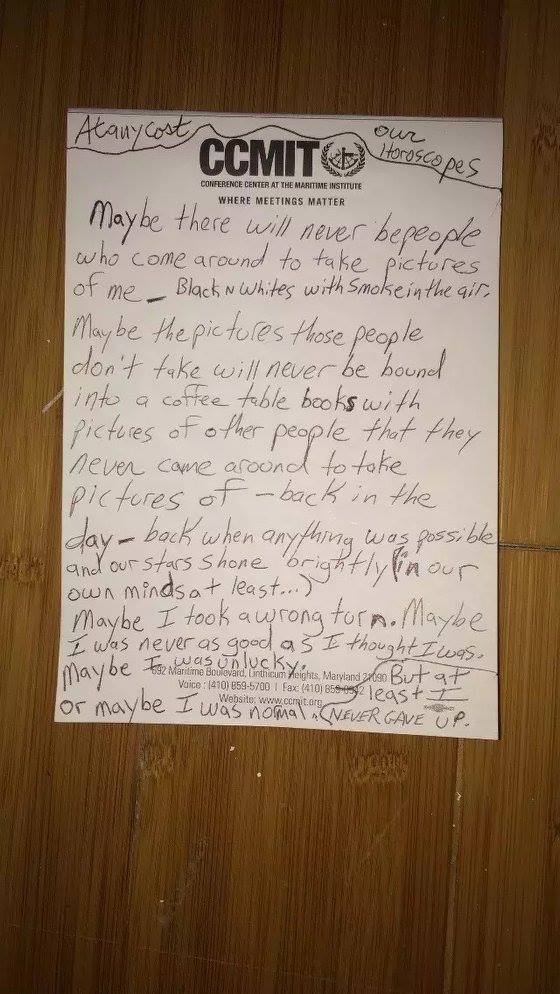 Atanycost
our
Horoscopes
CCMIT
CONFERENCE CENTER AT THE MARITIME INSTITUTE
WHERE MEETINGS MATTER
Maybe there will never bepeople
who come around to take pictures
of me – Black N Whites with smoke in the air.
Maybe the pictures those people
don't take will never be bound
into a coffee table books with
pictures of other people that they
never came around to take
pictures of – back in the
day – back when anything was possible
and our stars shone brightly (in our
own minds at least...)
Maybe I took a wrong turn. Maybe
I was never as good as I thought I was.
Maybe I was unlucky.
692 Maritime Boulevard, Linthicum Heights, Maryland 21090
But at
Voice: (410) 859-5700 | Fax: (410)
least I
Website: www.ccmit.org
or maybe I was normal.
NEVER GAVE UP.